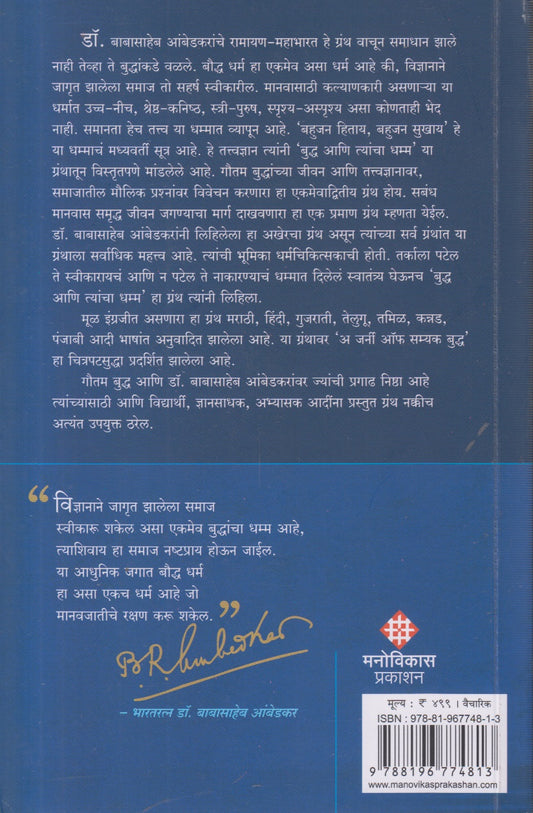 डॉ. बाबासाहेब आंबेडकरांचे रामायण-महाभारत हे ग्रंथ वाचून समाधान झाले
नाही तेव्हा ते बुद्धांकडे वळले. बौद्ध धर्म हा एकमेव असा धर्म आहे की, विज्ञानाने
जागृत झालेला समाज तो सहर्ष स्वीकारील. मानवासाठी कल्याणकारी असणाऱ्या या
धर्मात उच्च-नीच, श्रेष्ठ-कनिष्ठ, स्त्री-पुरुष, स्पृश्य-अस्पृश्य असा कोणताही भेद
नाही. समानता हेच तत्त्व या धम्मात व्यापून आहे. 'बहुजन हिताय, बहुजन सुखाय' हे
या धम्माचं मध्यवर्ती सूत्र आहे. हे तत्त्वज्ञान त्यांनी 'बुद्ध आणि त्यांचा धम्म' या
ग्रंथातून विस्तृतपणे मांडलेले आहे. गौतम बुद्धांच्या जीवन आणि तत्त्वज्ञानावर,
समाजातील मौलिक प्रश्नांवर विवेचन करणारा हा एकमेवाद्वितीय ग्रंथ होय. सबंध
मानवास समृद्ध जीवन जगण्याचा मार्ग दाखवणारा हा एक प्रमाण ग्रंथ म्हणता येईल.
डॉ. बाबासाहेब आंबेडकरांनी लिहिलेला हा अखेरचा ग्रंथ असून त्यांच्या सर्व ग्रंथांत या
ग्रंथाला सर्वाधिक महत्त्व आहे. त्यांची भूमिका धर्मचिकित्सकाची होती. तर्काला पटेल
ते स्वीकारायचं आणि न पटेल ते नाकारण्याचं धम्मात दिलेलं स्वातंत्र्य घेऊनच 'बुद्ध
आणि त्यांचा धम्म' हा ग्रंथ त्यांनी लिहिला.
मूळ इंग्रजीत असणारा हा ग्रंथ मराठी, हिंदी, गुजराती, तेलुगू, तमिळ, कन्नड,
पंजाबी आदी भाषांत अनुवादित झालेला आहे. या ग्रंथावर 'अ जर्नी ऑफ सम्यक बुद्ध'
हा चित्रपटसुद्धा प्रदर्शित झालेला आहे.
गौतम बुद्ध आणि डॉ. बाबासाहेब आंबेडकरांवर ज्यांची प्रगाढ निष्ठा आहे
त्यांच्यासाठी आणि विद्यार्थी, ज्ञानसाधक, अभ्यासक आदींना प्रस्तुत ग्रंथ नक्कीच
अत्यंत उपयुक्त ठरेल.
“विज्ञानाने जागृत झालेला समाज
स्वीकारू शकेल असा एकमेव बुद्धांचा धम्म आहे,
त्याशिवाय हा समाज नष्टप्राय होऊन जाईल.
या आधुनिक जगात बौद्ध धर्म
हा असा एकच धर्म आहे जो
मानवजातीचे रक्षण करू शकेल.”
B.R. Ambedkar
– भारतरत्न डॉ. बाबासाहेब आंबेडकर
मनोविकास
प्रकाशन
मूल्य : ₹ ४९९ । वैचारिक
ISBN : 978-81-967748-1-3
9 788196 774813
www.manovikasprakashan.com